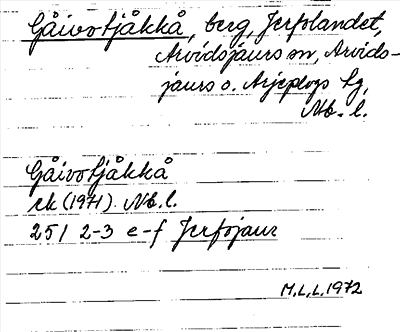 Gåivotjåkkå, berg, Jerfolandet,
Arvidsjaurs sn, Arvids-
jaurs o. Arjeplogs tg,
Nb. l.
Gåivotjåkkå
ek (1971) Nb. l.
25 I 2-3 e-f Jerfojaur
M.L.L. 1972